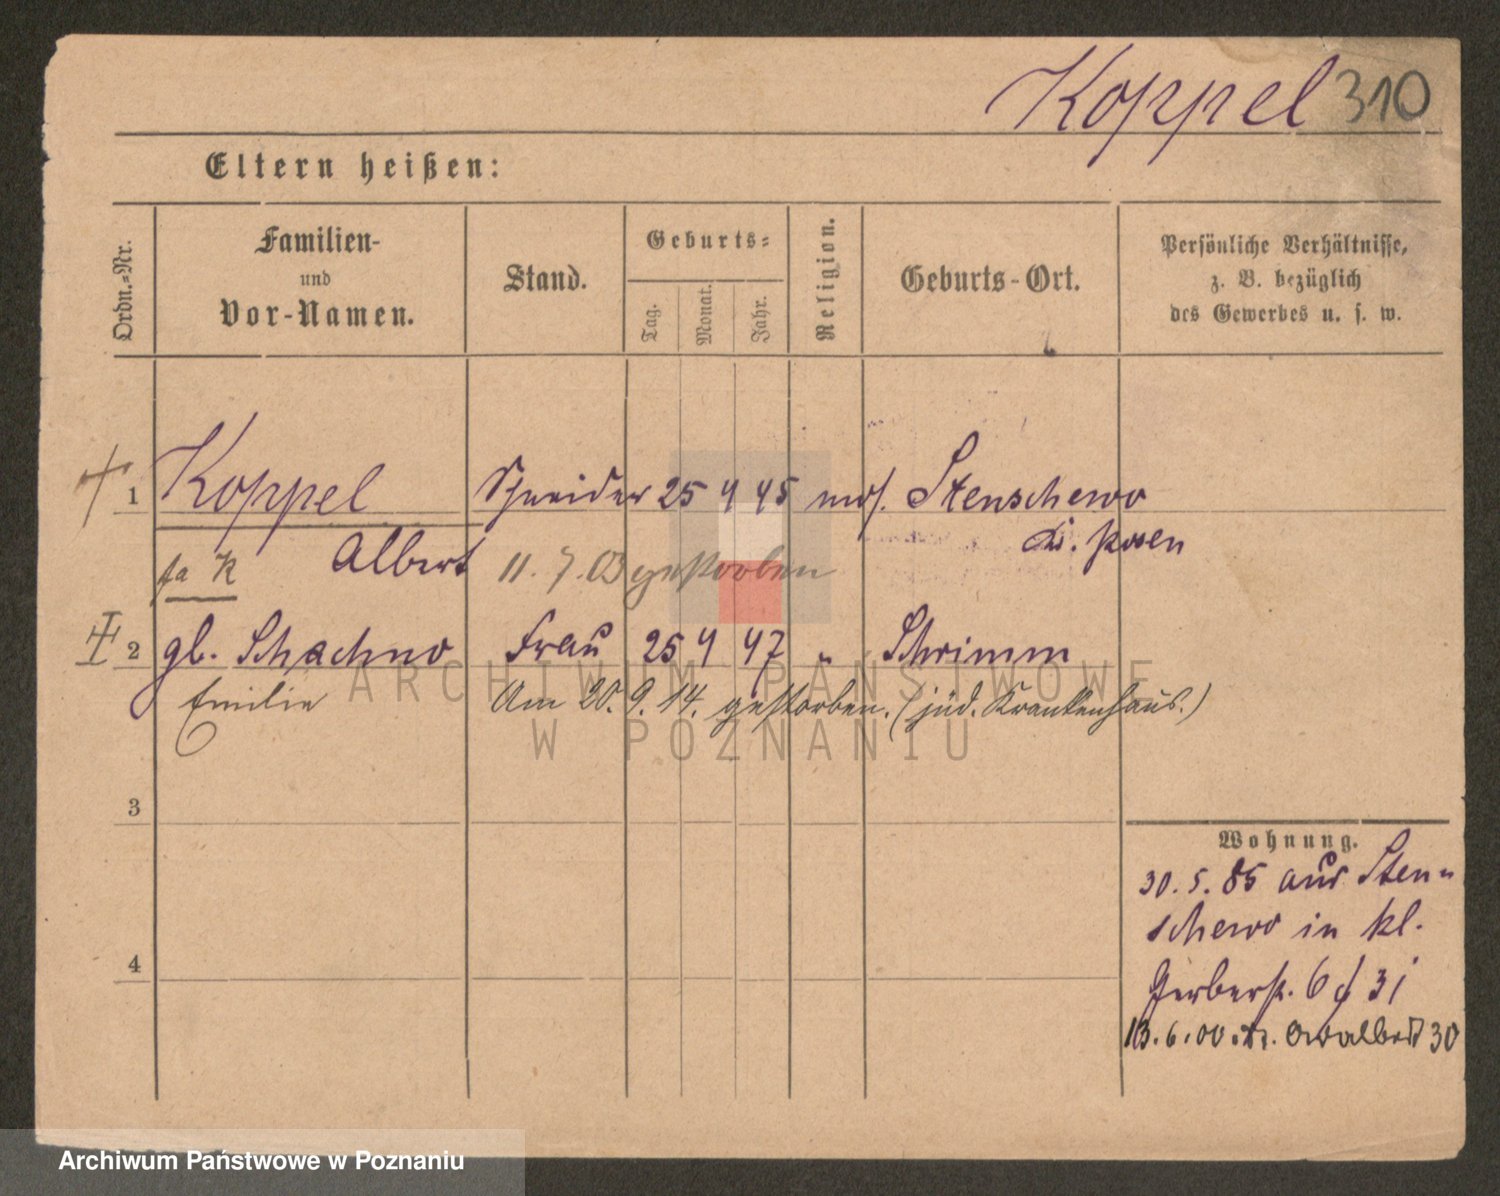 Koppel 310
Eltern heißen:
Ordn.-Nr.
Familien-
und
Vor-Namen.
Stand.
Geburts-
Tag.
Monat.
Jahr.
Religion.
Geburts-Ort.
Persönliche Verhältnisse,
z. B. bezüglich
des Gewerbes u. s. w.
1 Koppel Schneider 25 4 45 mos. Stenschewo
Albert Kr. Posen
fa K 11. 7. 03 gestorben
2 gb. Schachno Frau 25 4 47 " Schrimm
Emilie Am 20. 9. 14. gestorben. (jüd. Krankenhaus.)
3
4
Wohnung.
30. 5. 85 aus Sten-
schewo in kl.
Gerberst. 6 / 31
13. 6. 00. St. Adalbert 30
ARCHIWUM PAŃSTWOWE
W POZNANIU
Archiwum Państwowe w Poznaniu